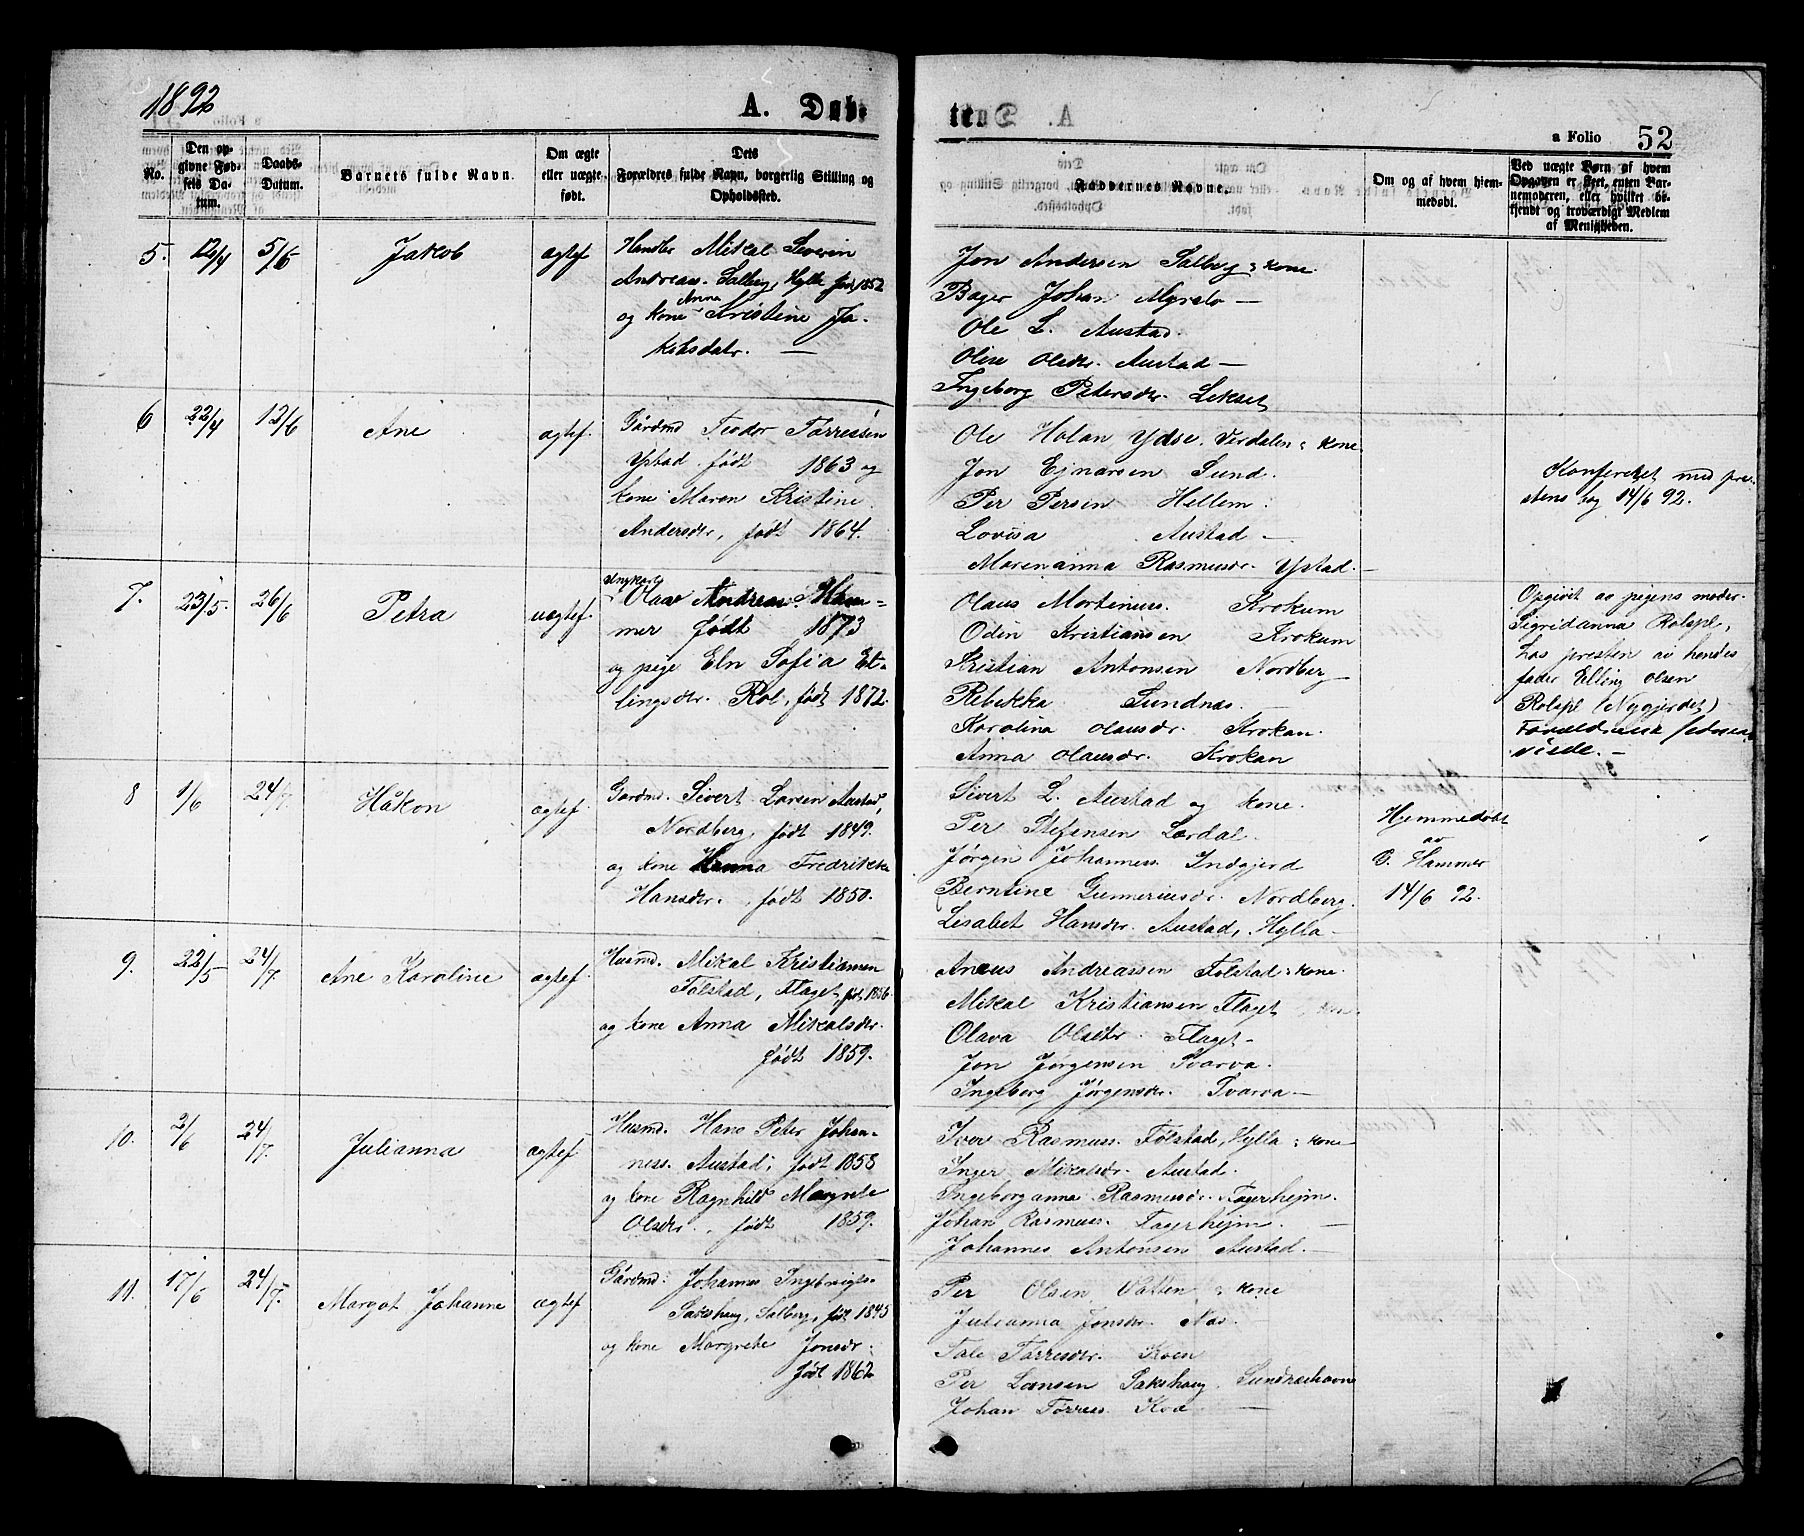 1892
A. Døbte
a Folio 52
No.
Den opgivne Fødsels Datum.
Daabs-Datum.
Barnets fulde Navn.
Om ægte eller uægte født.
Dets Forældres fulde Navn, borgerlig Stilling og Opholdssted.
Faddernes Navne.
Om og af hvem hjemmedøbt.
Ved uægte Børn af hvem Opgaven er skeet, enten Barnemoderen, eller hvilket bekjendt og troværdigt Medlem af Menigheden.
5. 12/4 5/6 Jakob ægtef
Handler Mikal Severin
Andreas. Salberg, Hylla født 1852
og kone Anna Kristine Ja-
kobsdatr.
Jon Andersen Salberg & kone
Bager Johan Myrslo
Ole L. Austad.
Oline Olsdtr. Austad
Ingeborg Petersdtr. Lekset
6 22/4 12/6 Ane ægtef.
Gårdmd Teodor Torressen
Ystad født 1863 og
kone Maren Kristine
Andersdtr, født 1864.
Ole Holan Ydse, Verdalen & kone
Jon Ejnarsen Sund.
Per Persen Hellem
Lovisa Austad
Marenanna Rasmusdr. Ystad
Konfereret med pre-
stens bog 14/6 92.
7. 23/5. 26/6 Petra uægtef.
Ungkarl
Olaus Andreas Ham-
mer født 1873
og pige Eln Sofia El-
lingsdtr. Rol, født 1872.
Olaus Mortinus. Krokum
Odin Kristiansen Krokum
Kristian Antonsen Nordberg
Rebekka Sundnæs
Karolina Olausdr. Krokan.
Anna Olausdr. Krokan
Opgivit av pigens moder
Sigridanna Rolspl,
hos presten av hendes
fader Elling Olsen
Rolspl (Nygjerdet)
8 1/6 24/7 Håkon ægtef
Gårdmd. Sivert Larsen Austad,
Nordberg, født 1849.
og kone Hanna Fredrikke
Hansdtr., født 1850.
Sivert L. Austad og kone.
Per Stefensen Lordal.
Jørgen Johannes. Indgjerd
Berntine Gunneriusdr. Nordberg.
Lisabet Hansdtr. Austad, Hylla
Hjemmedøbt
av
O. Hammer
14/6 92.
9. 22/5 24/7 Ane Karoline ægtef
Husmd. Mikal Kristiansen
Følstad, Flaget, født 1856
og kone Anna Mikalsdtr.
født 1859.
Aneus Andreassen Følstad & kone.
Mikal Kristiansen Flaget
Olava Olsdtr. Flaget
Jon Jørgensen Tvarva.
Ingeborg Jørgensdtr. Tvarva
10. 2/6 24/7. Julianna ægtef
Husmd. Hans Peter Johan-
ness. Austad; født 1858
og kone Ragnhild Margrete
Olsdtr., født 1859.
Iver Rasmuss. Følstad, Hylla & kone
Inger Mikalsdr. Austad.
Ingeborganna Rasmusdr. Fagerhejm.
Johan Rasmuss. Fagerhejm.
Johannes Antonsen Austad.
11. 17/6 24/7. Margot Johanne ægtef
Gårdmd. Johannes Ingebrigts.
Sakshaug, Salberg, født 1845
og kone Margrete Jonsdr.
født 1862
Per Olsen Vatten & kone
Julianna Jonsdr. Næs
Tale Torresdtr. Koen
Per Larsen Sakshaug. Sundnæshavn
Johan Torress. Koa